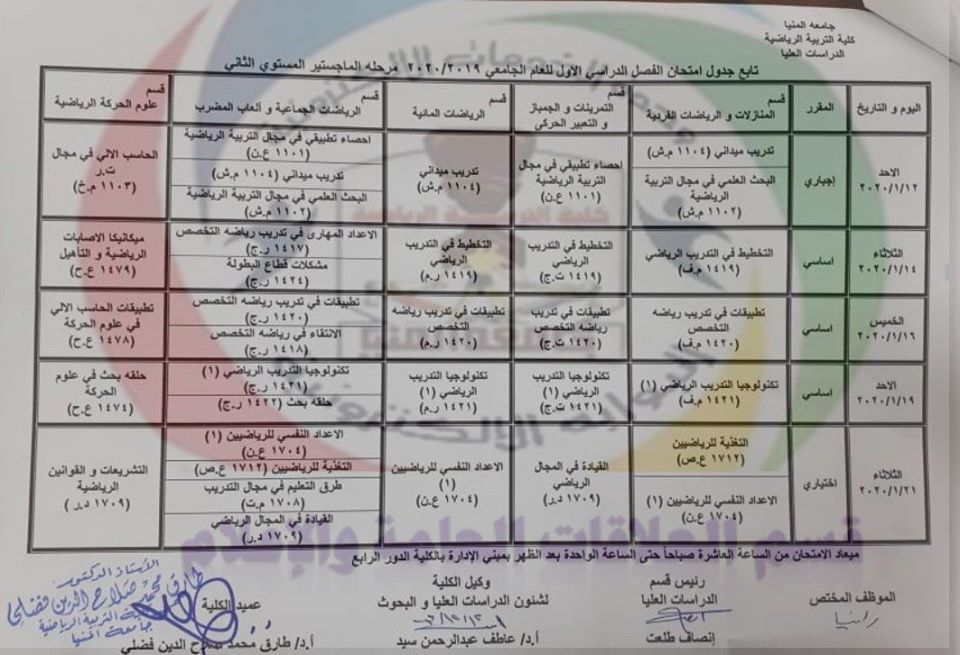 جامعه المنيا
كلية التربية الرياضية
الدراسات العليا
تابع جدول امتحان الفصل الدراسي الاول للعام الجامعي ٢٠٢٠/٢٠١٩ مرحله الماجستير المستوي الثاني
اليوم و التاريخ
المقرر
قسم
المنازلات و الرياضات الفردية
قسم
التمرينات و الجمباز
و التعبير الحركي
قسم
الرياضات المائية
قسم
الرياضات الجماعية و ألعاب المضرب
قسم
علوم الحركة الرياضية
الاحد
٢٠٢٠/١/١٢
إجباري
تدريب ميداني (١١٠٤ م.ش)
البحث العلمي في مجال التربية
الرياضية
(١١٠٢ م.ش)
احصاء تطبيقي في مجال
التربية الرياضية
(١١٠١ ع.ن)
تدريب ميداني
(١١٠٤ م.ش)
احصاء تطبيقي في مجال التربية الرياضية
(١١٠١ ع.ن)
تدريب ميداني (١١٠٤ م.ش)
البحث العلمي في مجال التربية الرياضية
(١١٠٢ م.ش)
الحاسب الالي في مجال
ت.ر
(١١٠٣ م.خ)
الثلاثاء
٢٠٢٠/١/١٤
اساسي
التخطيط في التدريب الرياضي
(١٤١٩ م.ف)
التخطيط في التدريب
الرياضي
(١٤١٩ ت.ج)
التخطيط في التدريب
الرياضي
(١٤١٩ ر.م)
الاعداد المهارى في تدريب رياضه التخصص
(١٤١٧ ر.ج)
مشكلات قطاع البطولة
(١٤٢٤ ر.ج)
ميكانيكا الاصابات
الرياضية و التأهيل
(١٤٧٩ ع.ح)
الخميس
٢٠٢٠/١/١٦
اساسي
تطبيقات في تدريب رياضه
التخصص
(١٤٢٠ م.ف)
تطبيقات في تدريب
رياضه التخصص
(١٤٢٠ ت.ج)
تطبيقات في تدريب رياضه
التخصص
(١٤٢٠ ر.م)
تطبيقات في تدريب رياضه التخصص
(١٤٢٠ ر.ج)
الانتقاء في رياضه التخصص
(١٤١٨ ر.ج)
تطبيقات الحاسب الالي
في علوم الحركة
(١٤٧٨ ع.ح)
الاحد
٢٠٢٠/١/١٩
اساسي
تكنولوجيا التدريب الرياضي (١)
(١٤٢١ م.ف)
تكنولوجيا التدريب
الرياضي (١)
(١٤٢١ ت.ج)
تكنولوجيا التدريب
الرياضي (١)
(١٤٢١ ر.م)
تكنولوجيا التدريب الرياضي (١)
(١٤٢١ ر.ج)
حلقه بحث (١٤٢٢ ر.ج)
حلقه بحث في علوم
الحركة
(١٤٧٤ ع.ح)
الثلاثاء
٢٠٢٠/١/٢١
اختياري
التغذية للرياضيين
(١٧١٢ ع.ص)
الاعداد النفسي للرياضيين (١)
(١٧٠٤ ع.ن)
القيادة في المجال
الرياضي
(١٧٠٩ د.ر)
الاعداد النفسي للرياضيين
(١)
(١٧٠٤ ع.ن)
الاعداد النفسي للرياضيين (١)
(١٧٠٤ ع.ن)
التغذية للرياضيين (١٧١٢ ع.ص)
طرق التعليم في مجال التدريب
(١٧٠٨ م.ت)
القيادة في المجال الرياضي
(١٧٠٩ د.ر)
التشريعات و القوانين
الرياضية
(١٧٠٩ د.ر)
قسم العلاقات العامة والإعلام
ميعاد الامتحان من الساعة العاشرة صباحاً حتى الساعة الواحدة بعد الظهر بمبني الإدارة بالكلية الدور الرابع
الموظف المختص
رانيا
رئيس قسم
الدراسات العليا
إنصاف طلعت
وكيل الكلية
لشنون الدراسات العليا و البحوث
أ.د/ عاطف عبدالرحمن سيد
عميد الكلية
أ.د/ طارق محمد صلاح الدين فضلي
الأستاذ الدكتور
طارق محمد صلاح الدين فضلي
كلية التربية الرياضية
جامعة المنيا